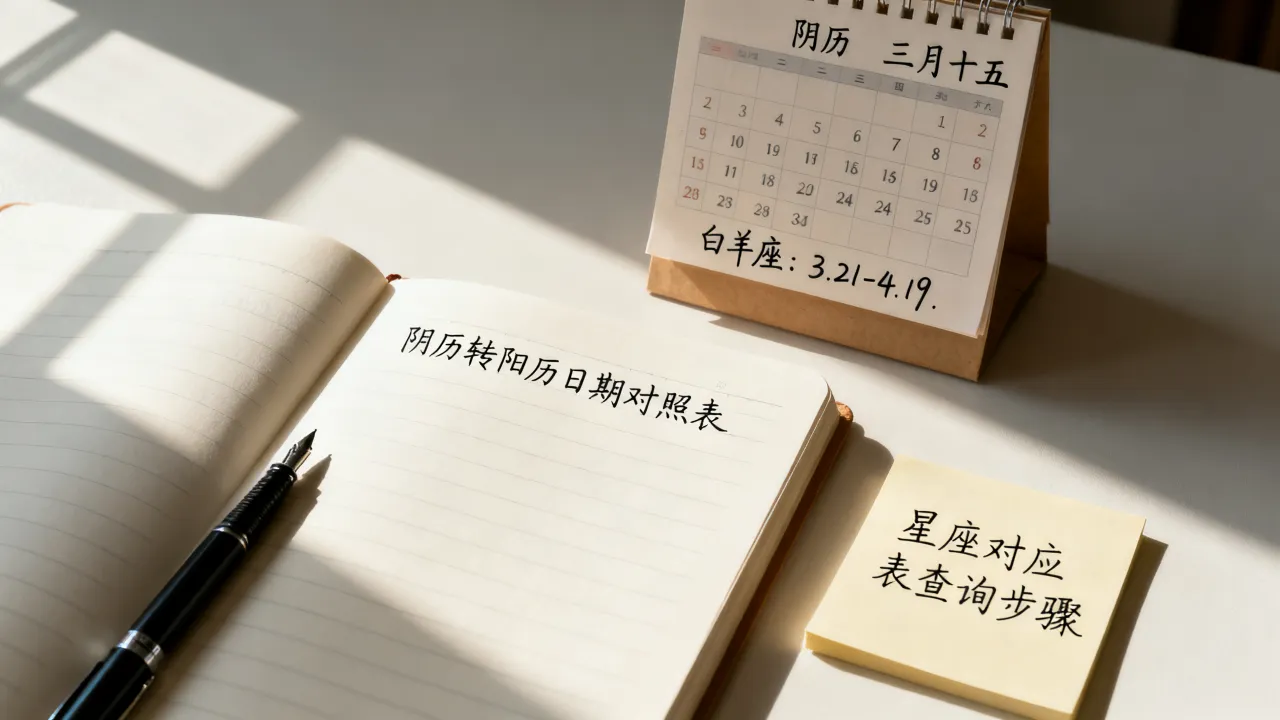 阴历 三月十五
1 2
2 3 4 5 6 7 8 6
9 10 19 11 16 15 19 15
15 11 18 20 24 24 25 25
23 23 28 34
白羊座：3.21-4.19.
阴历转阳历日期对照表
星座对应
表查询步骤